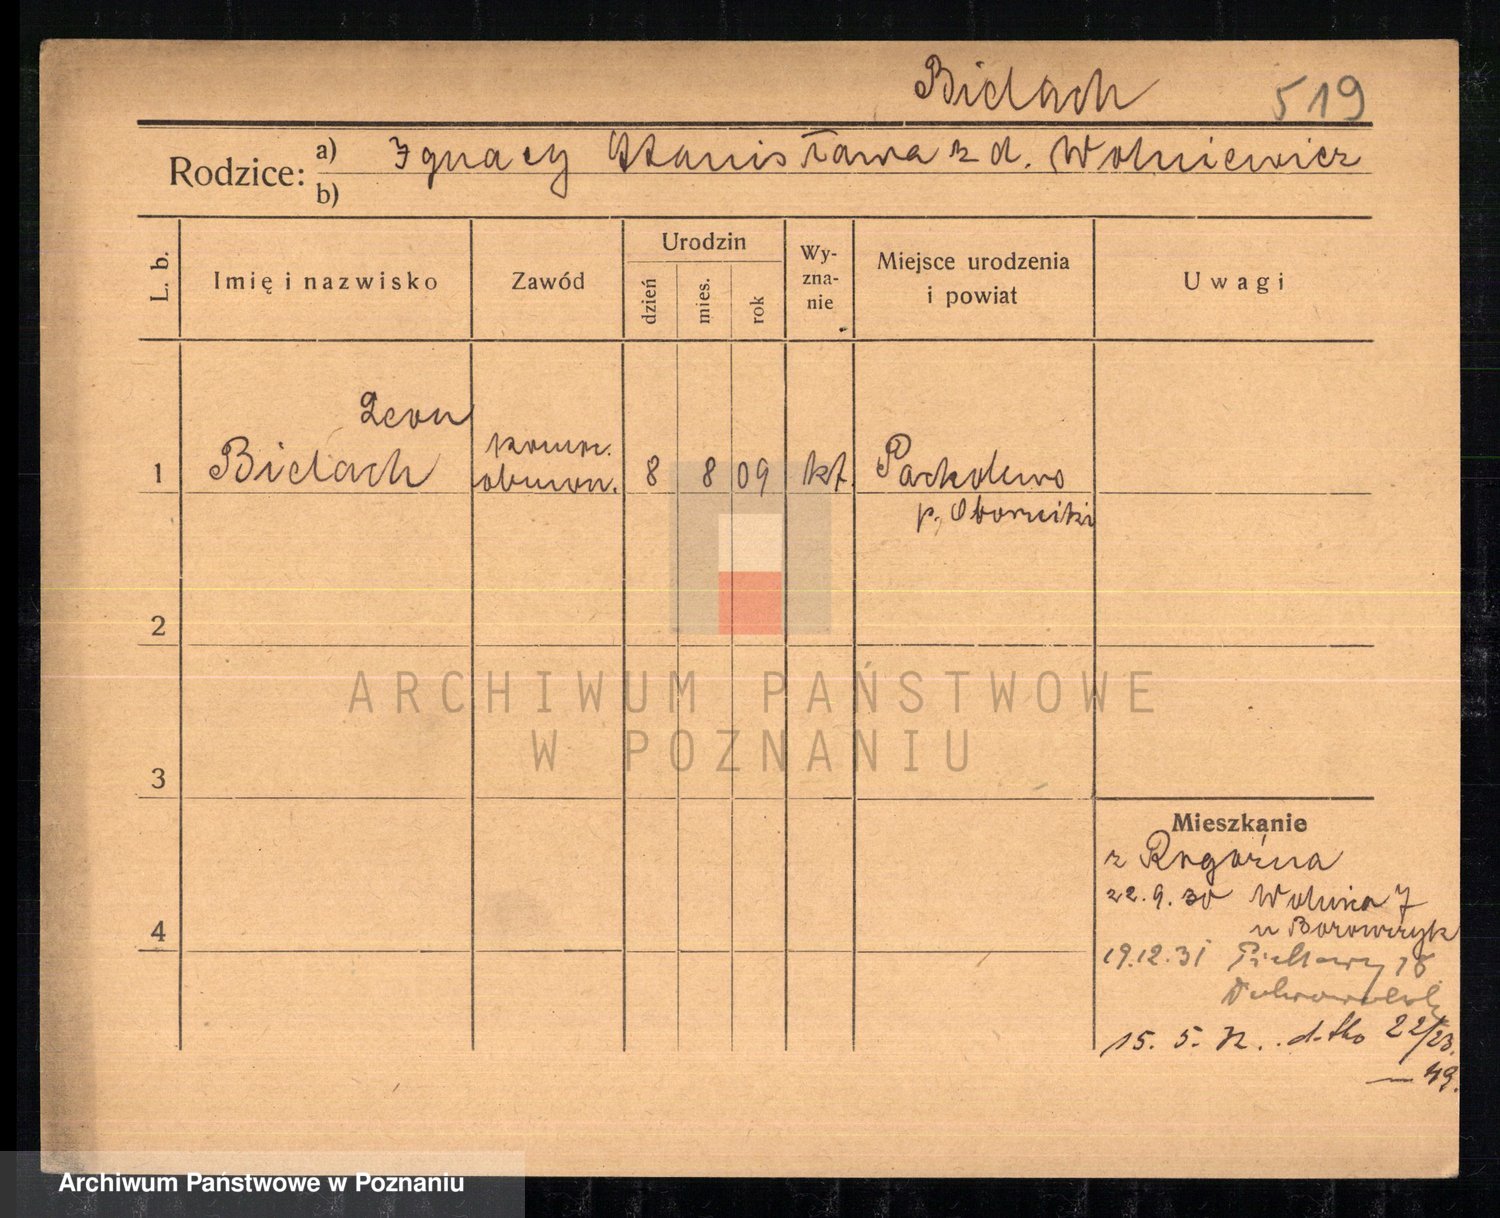 Bielach 519
Rodzice: a) Ignacy Stanisława z d. Wolniewicz
b)
L. b. Imię i nazwisko Zawód Urodzin dzień mies. rok Wy-zna-nie Miejsce urodzenia i powiat Uwagi
Leon
1 Bielach 8 8 09 kt. Pacholewo
p. Oborniki
2
3
4
Mieszkanie
z Rogoźna
22.9.30 Wolnica 7
u Borowczyk
19.12.31 18
15. 5. 32. d-tto 22/23.
— 49.
ARCHIWUM PAŃSTWOWE
W POZNANIU
Archiwum Państwowe w Poznaniu